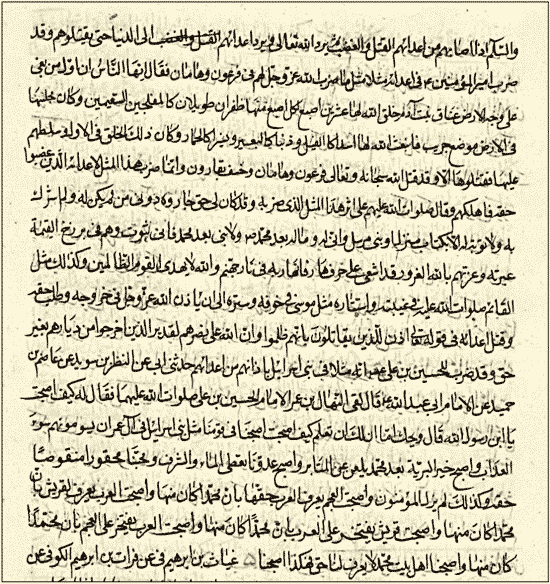 والسلام اذا اصابهم من اعدائهم القتل والغصب يرد الله تعالى ويرد اعدائهم القتل والغصب الى الدنيا حتى يقتلوهم وقد
ضرب امير المؤمنين ع في اعدائه مثلا مثل ما ضرب الله عز وجل لهم في فرعون وهامان فقال ايها الناس ان اول من بغى
على وجه الارض عناق بنت آدم خلق الله لها عشرين اصبع لكل اصبع منها ظفران طويلان كالمنجلين وكان مجلسها
في الارض موضع جريب فبعث الله لها اسدا كالفيل وذئبا كالبعير ونسرا كالحمار وكان ذلك الخلق في الاول فسلطهم
عليها فقتلوها الا وقد قتل الله سبحانه وتعالى فرعون وهامان وخسف بقارون وانما ضرب هذا المثل لاعدائه الذين غصبوا
حقه فاهلكهم وقال صلوات الله عليه على اثر هذا المثل الذي ضربه وقد كان لي حق حازه دوني من لم يكن له ولم اشرك
به ولا توبة له الا بكتاب منزل او نبي مرسل وانى له بعد محمد ص ولا نبي بعد محمد فانى يتوب وهو في برزخ القيمة
وغرتهم بالله الغرور قد اشفى على جرف هار فانهار به في نار جهنم والله لا يهدي القوم الظالمين وكذلك مثل
القائم صلوات الله عليه في غيبته واستتاره مثل موسى في خوفه وستره الى ان ياذن الله عز وجل في خروجه وطلب حقه
وقتل اعدائه في قوله اذن للذين يقاتلون بانهم ظلموا وان الله على نصرهم لقدير الذين اخرجوا من ديارهم بغير
حق وقد ضرب للحسين بن علي مثلا في بني اسرائيل من اعدائهم حدثني ابي عن النضر بن سويد عن عاصم بن
حميد عن الامام ابي عبد الله ع قال لقى المنهال بن عمر الامام الحسين بن علي صلوات الله عليهما فقال له كيف اصبحت
يا ابن رسول الله قال ويحك اما ان لك ان تعلم كيف اصبحت اصبحنا في قومنا مثل بني اسرائيل في آل عمران يسومونهم سوء
العذاب واصبح خير البرية بعد محمد يلعن عن المنابر واصبح عدونا يعطى المال والشرف ومحبنا محقورا منقوصا
حقه وكذلك لم يزل المؤمنون واصبحت العجم يعرف العرب حقها بان محمدا كان منها واصبحت العرب يعرف لقريش بان
محمدا كان منها واصبحت قريش يفتخر على العرب بان محمدا كان منها واصبحت العرب يفتخر على العجم بان محمدا
كان منها واصبحنا اهل بيت محمد لا يعرف لنا حق فهكذا اصبحنا بن ابرهيم عن فرات بن ابرهيم الكوفي عن